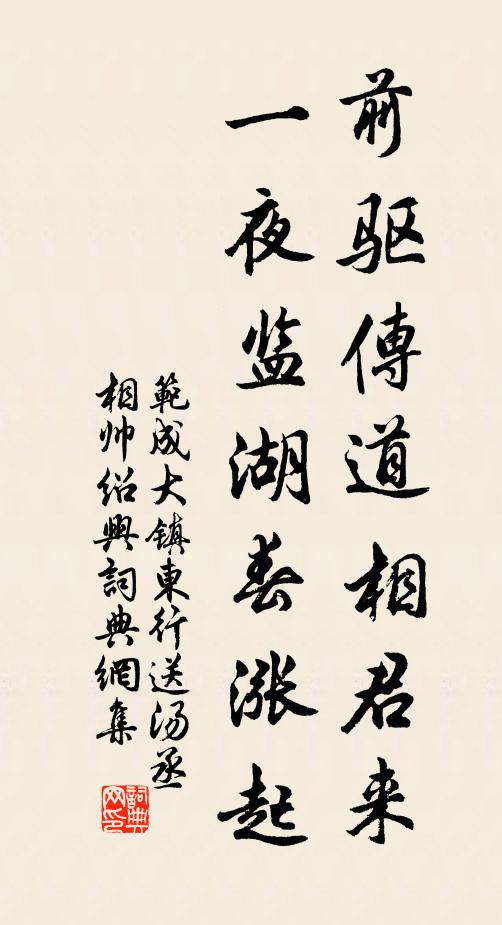 前驱傳道相君来
一夜监湖春涨起
範成大镇東行送汤丞
相帅绍興詞典網集
詞典
网印